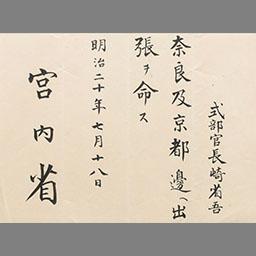 式部官長崎省吾
奈良及京都邊ヘ出
張ヲ命ス
明治二十年七月十八日
宮内省